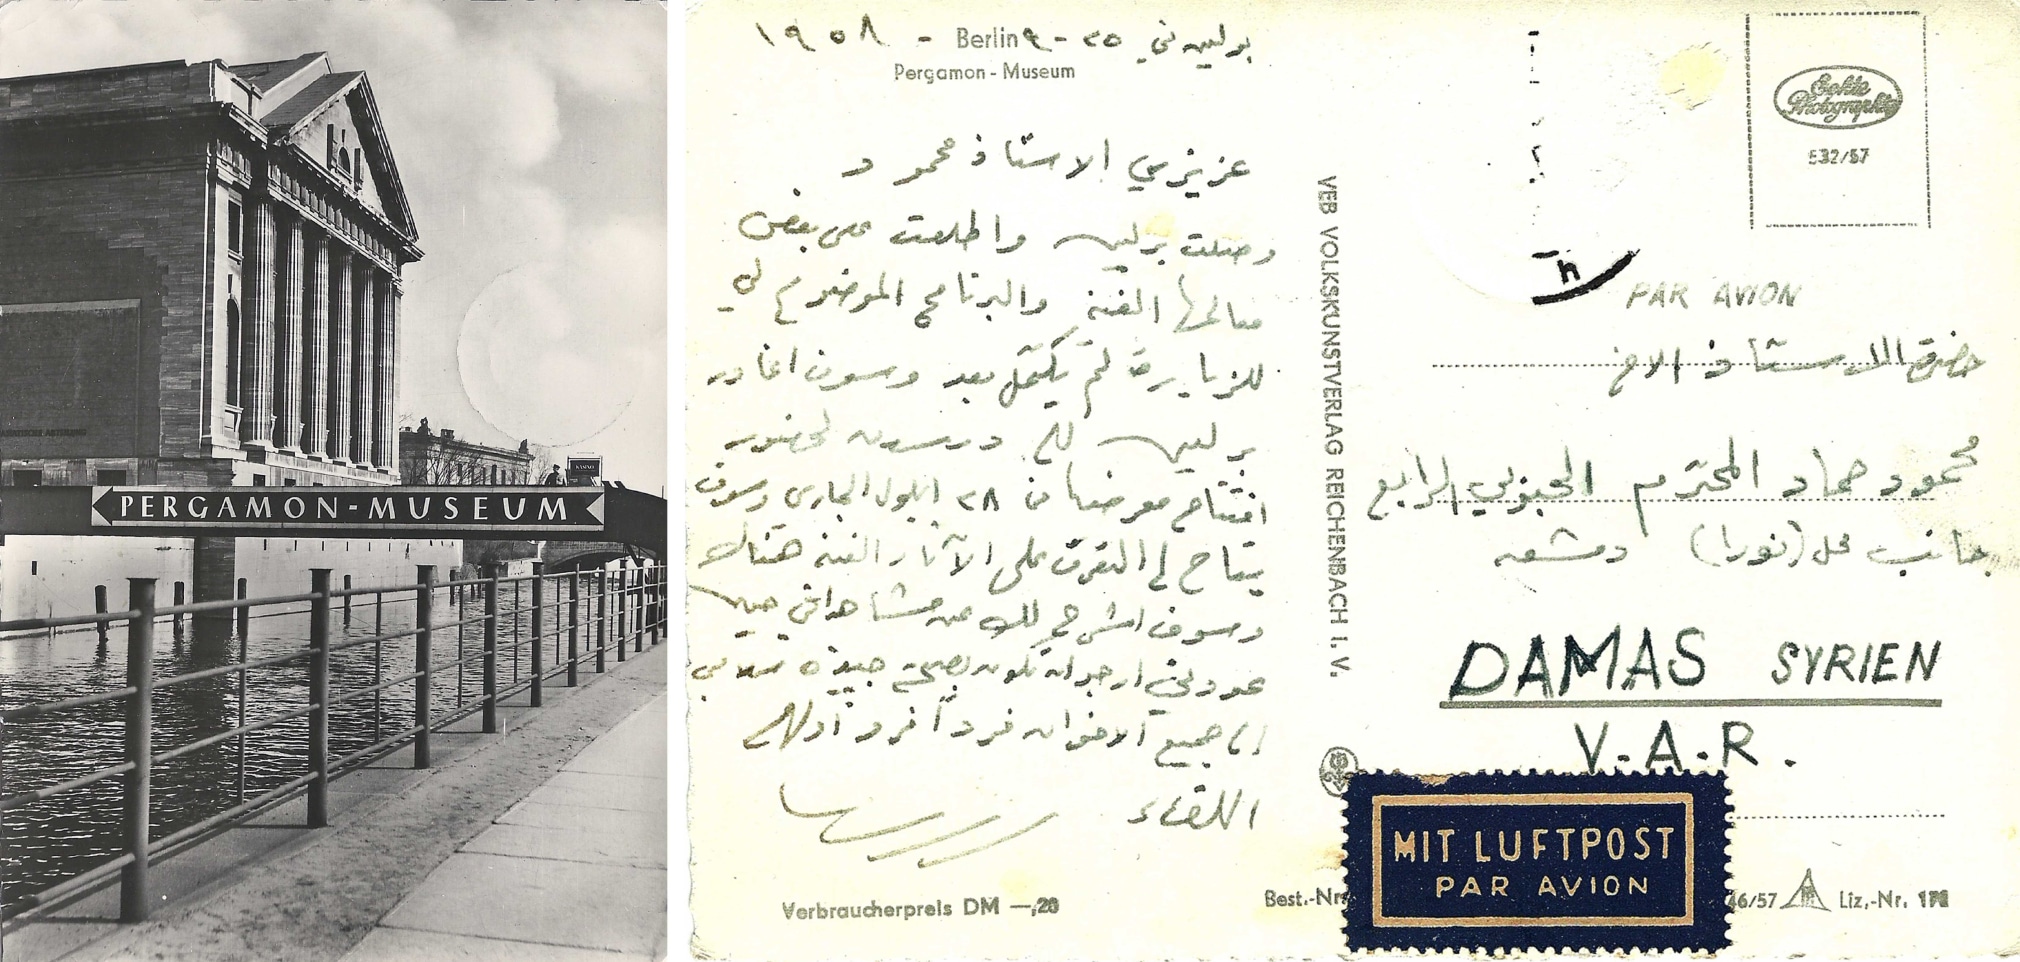 PERGAMON-MUSEUM
KASINO
برلين في ٢٥ - ٩ - ١٩٥٨
Berlin
Pergamon - Museum
عزيزي الاستاذ محمود
وصلت برلين واطلعت على بعض
معالمها الفنية والبرنامج الموضوع لي
للزيارة لم يكتمل بعد وسوف اغادر
برلين الى درسدن لحضور
افتتاح معرضنا في ٢٨ ايلول الجاري وسوف
يتاح لي التعرف على الآثار الفنية هناك
وسوف اشرح لك عن مشاهداتي حين
عودتي ارجو ان تكون بصحة جيدة سلامي
الى جميع الاخوان فرداً فرداً
اللقاء
Verbraucherpreis DM —,20
VEB VOLKSKUNSTVERLAG REICHENBACH I. V.
Echte
Photographie
532/57
PAR AVION
حضرة الاستاذ الاخ
محمود حماد المحترم
جانب محل (نورا) دمشق
DAMAS SYRIEN
V.A.R.
MIT LUFTPOST
PAR AVION
Best.-Nr.
46/57 Liz.-Nr.